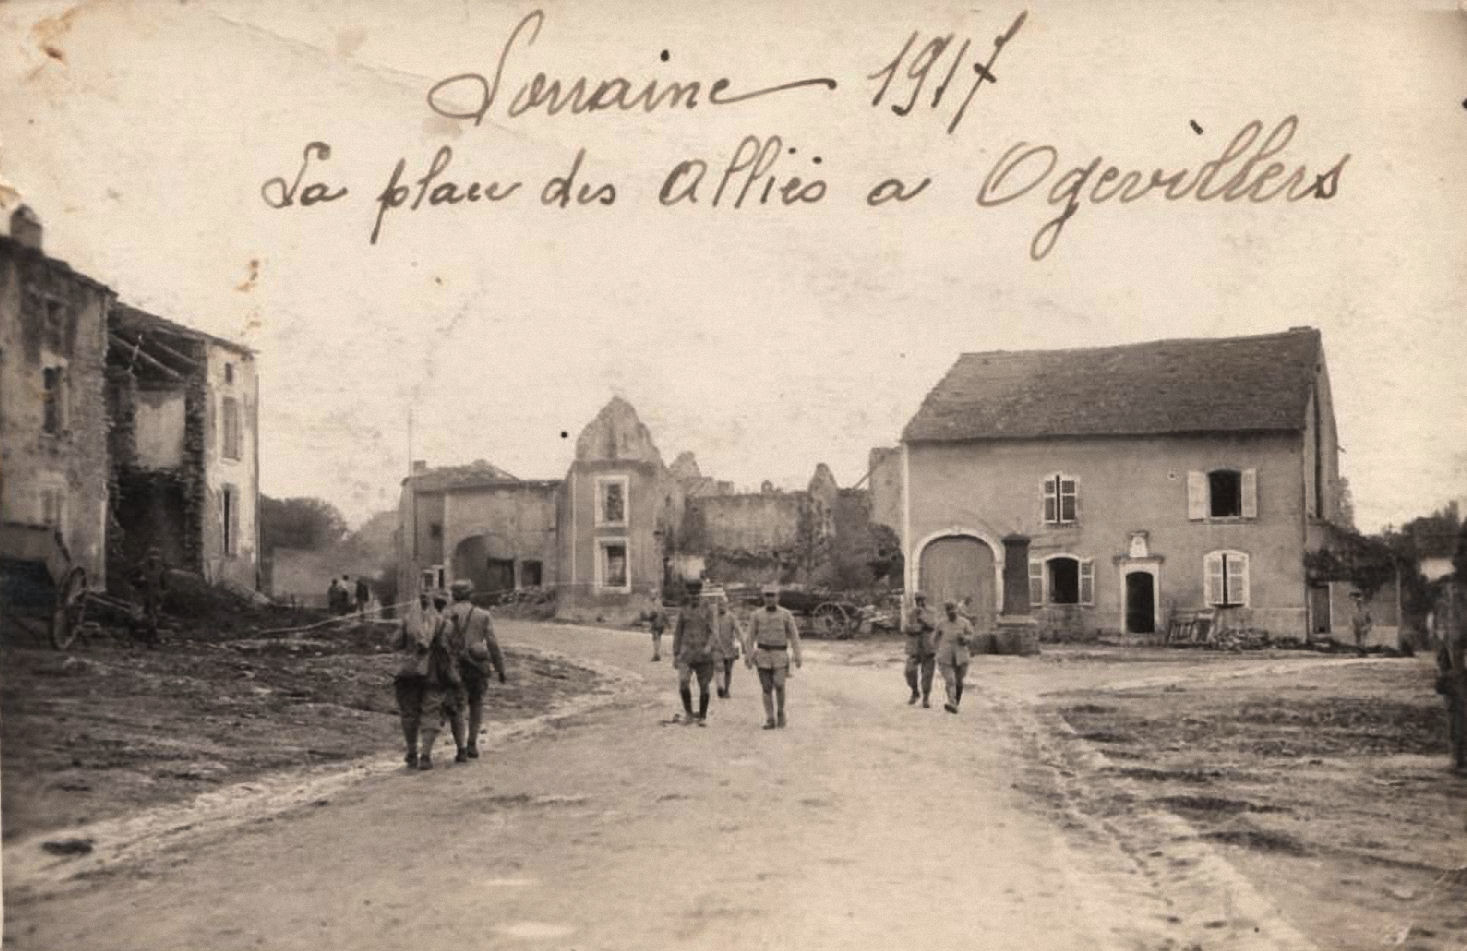 Lorraine 1917
La place des Alliés a Ogevillers